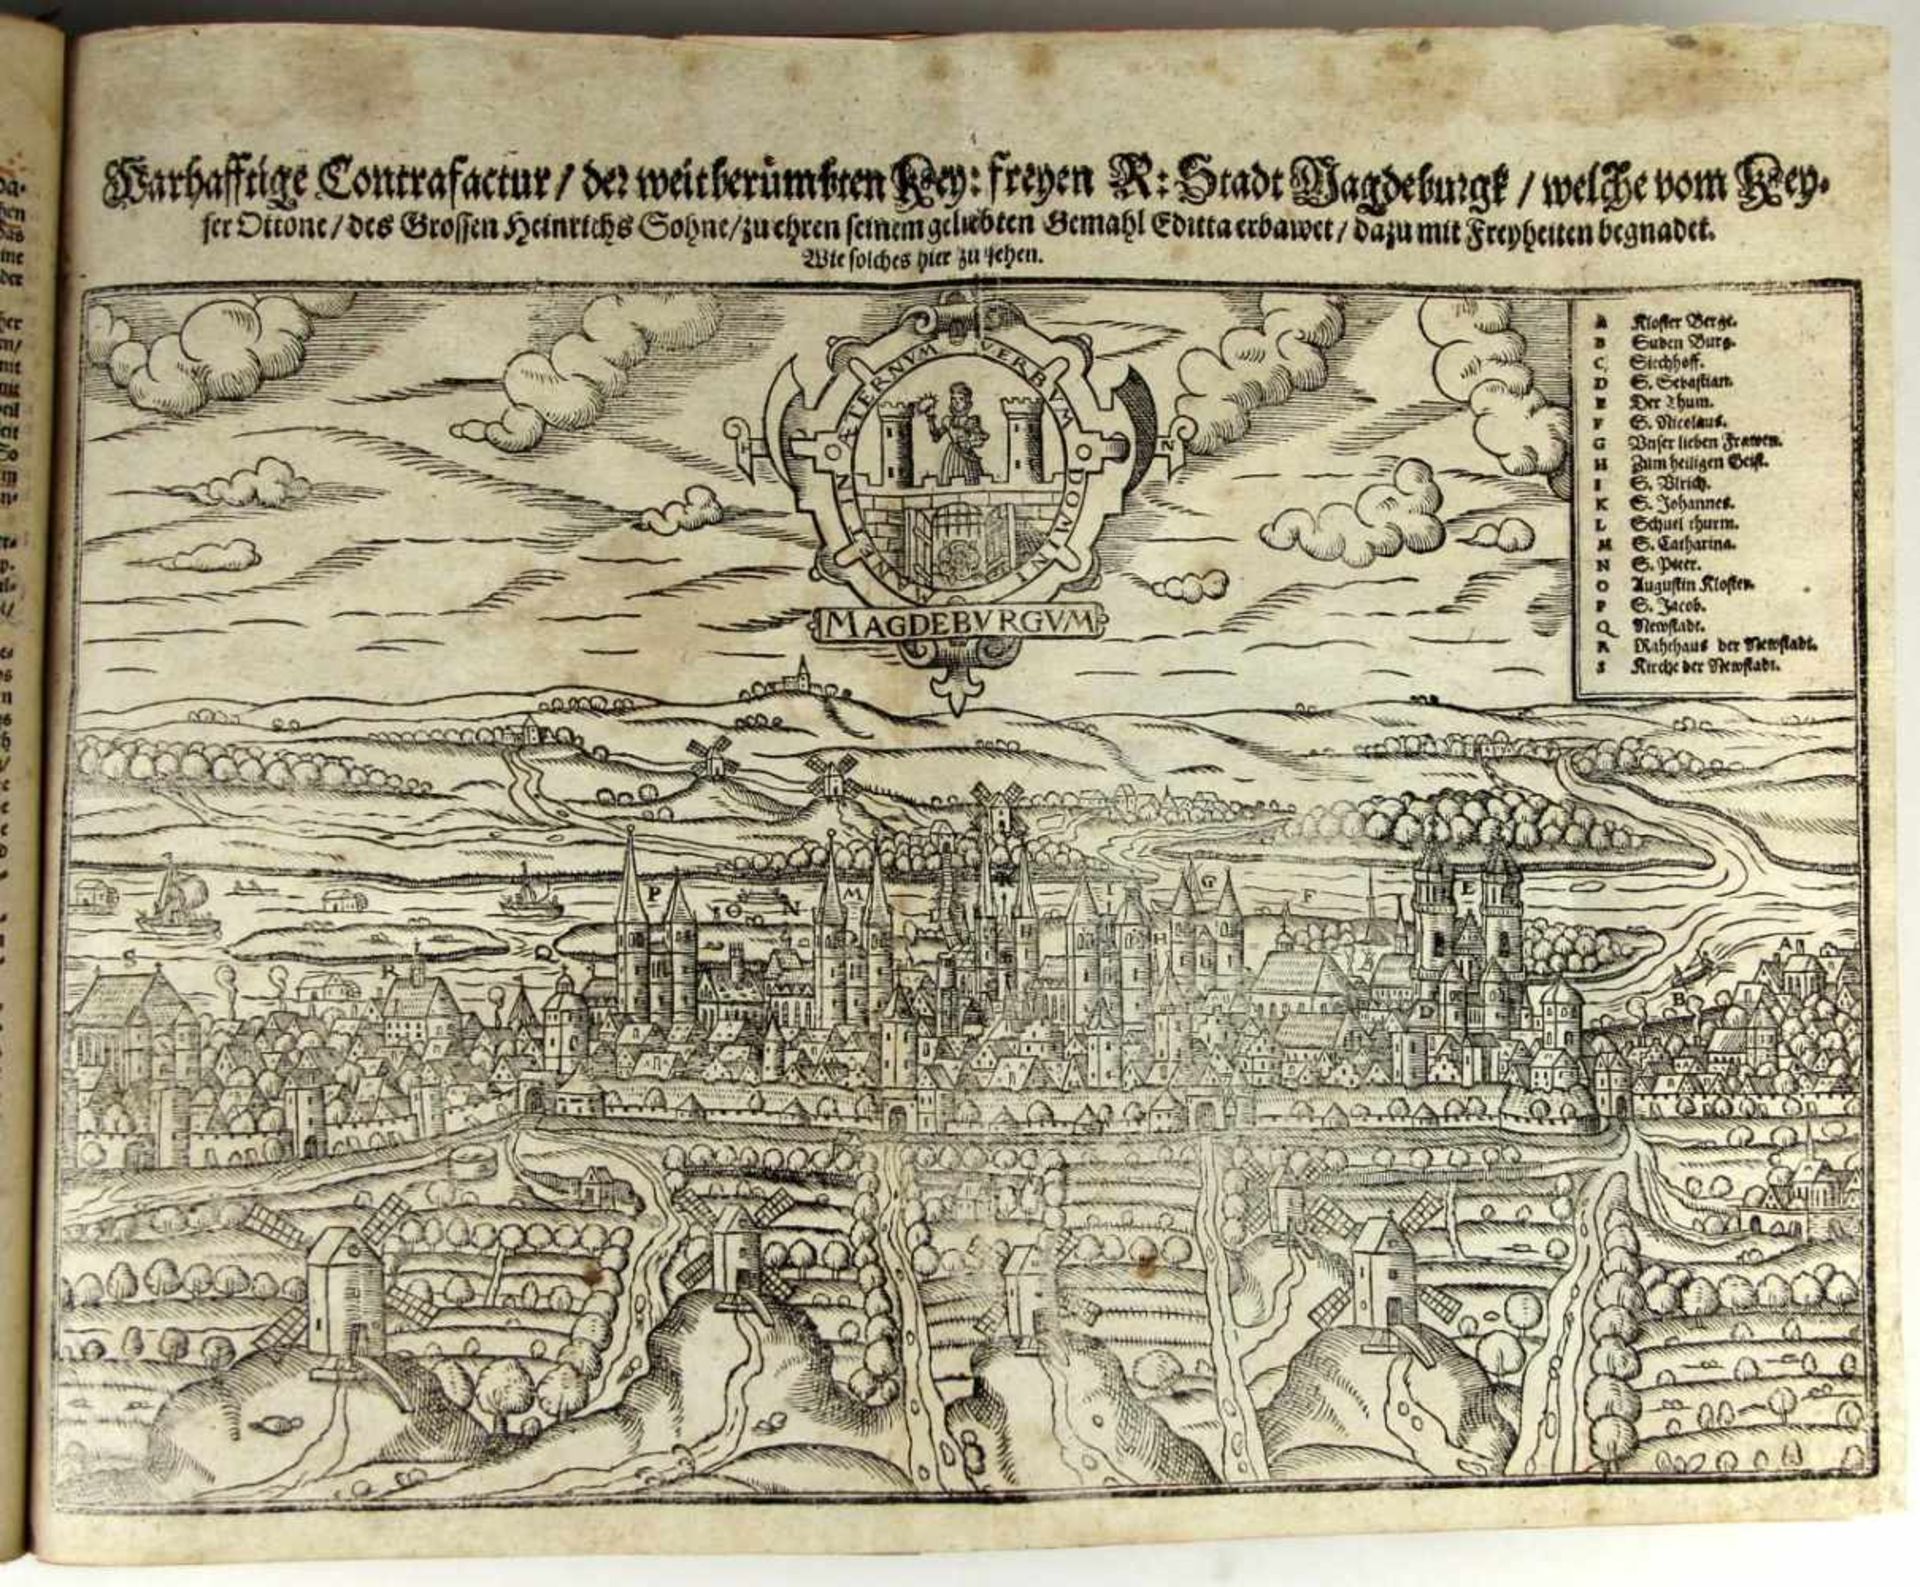 Warhafftige Contrafactur / der weitberümbten Key: freyen R: Stadt Magdeburgk / welche vom Key-
ser Ottone / des Grossen Heinrichs Sohne / zu ehren seinem geliebten Gemahl Editta erbawet / dazu mit Freyheiten begnadet.
Wie solches hier zu sehen.
VERBVM DOMINI MANET IN ÆTERNVM
MAGDEBVRGVM
A Kloster Berge.
B Suden Burg.
C Siechhoff.
D S. Sebastian.
E Der Thum.
F S. Nicolaus.
G Vnser lieben Frawen.
H Zum heiligen Geist.
I S. Vlrich.
K S. Johannes.
L Schuel thurm.
M S. Catharina.
N S. Peter.
O Augustin Kloster.
P S. Jacob.
Q Newstadt.
R Rahthaus der Newstadt.
S Kirche der Newstadt.
P O N M K I G F E
S R Q H A
B
D